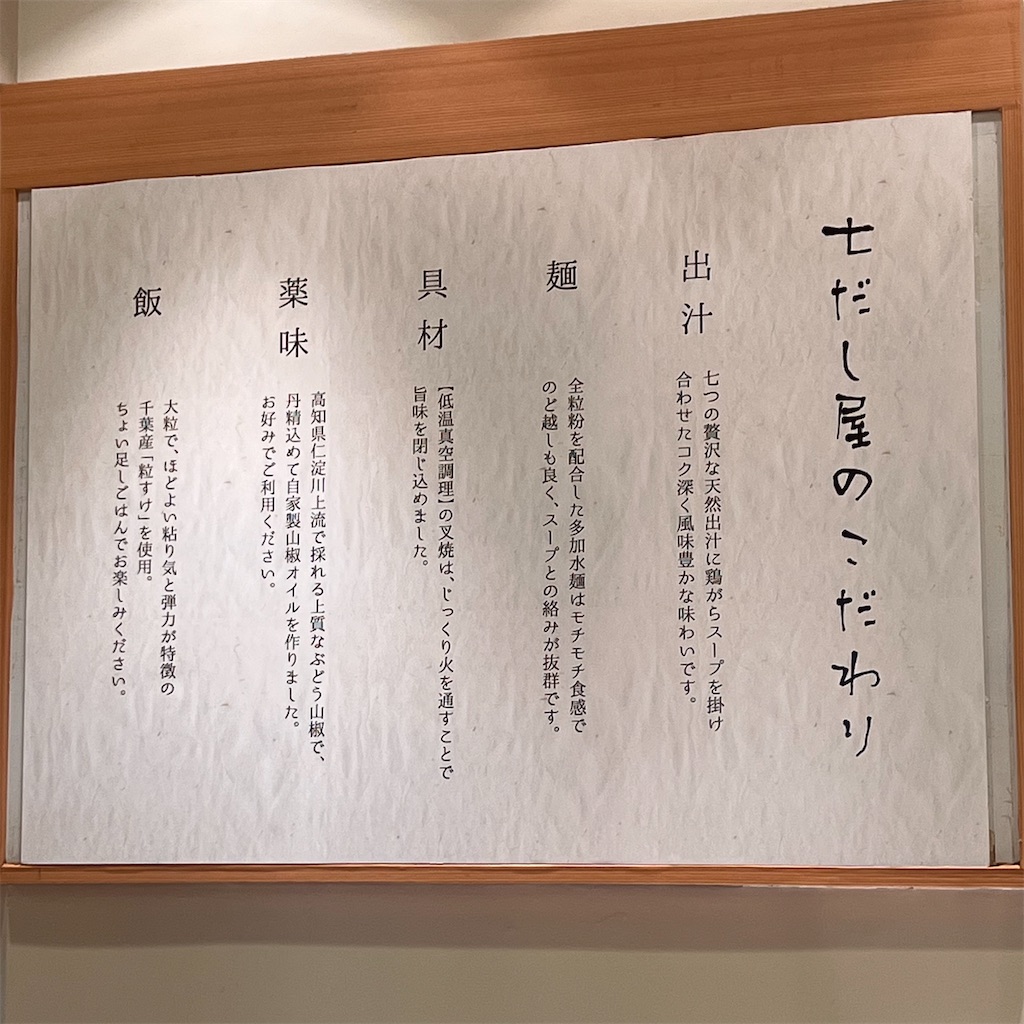 七だし屋のこだわり
出汁
七つの贅沢な天然出汁に鶏がらスープを掛け
合わせたコク深く風味豊かな味わいです。
麺
全粒粉を配合した多加水麺はモチモチ食感で
のど越しも良く、スープとの絡みが抜群です。
具材
【低温真空調理】の叉焼は、じっくり火を通すことで
旨味を閉じ込めました。
薬味
高知県仁淀川上流で採れる上質なぶどう山椒で、
丹精込めて自家製山椒オイルを作りました。
お好みでご利用ください。
飯
大粒で、ほどよい粘り気と弾力が特徴の
千葉産「粒すけ」を使用。
ちょい足しごはんでお楽しみください。